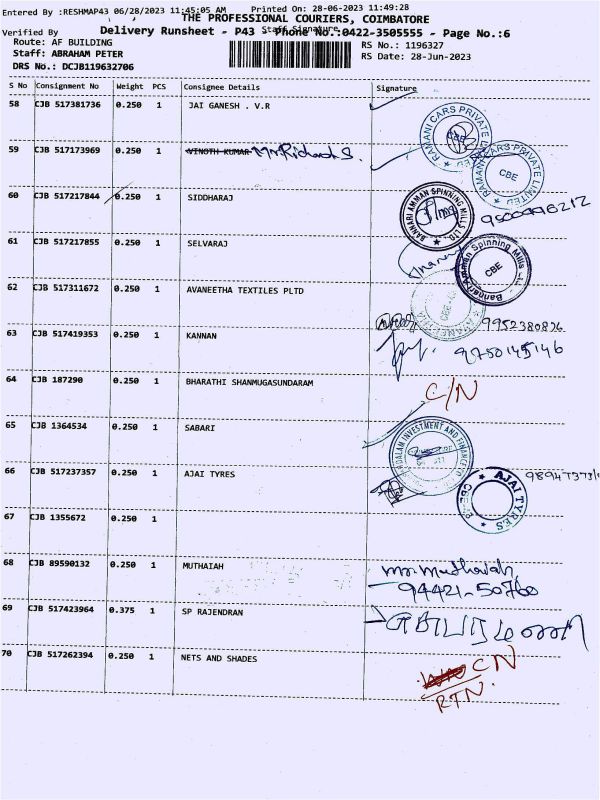 Entered By :RESHMAP43 06/28/2023 11:45:05 AM Printed On: 28-06-2023 11:49:28
THE PROFESSIONAL COURIERS, COIMBATORE
Verified By Staff Signature
Delivery Runsheet - P43 - Phone No.:0422-3505555 - Page No.:6
Route: AF BUILDING RS No.: 1196327
Staff: ABRAHAM PETER RS Date: 28-Jun-2023
DRS No.: DCJB119632706
S No Consignment No Weight PCS Consignee Details Signature
58 CJB 517381736 0.250 1 JAI GANESH . V.R
RAMANI CARS PRIVATE LIMITED
59 CJB 517173969 0.250 1 VINOTH KUMAR Mr Richard S.
RAMANI CARS PRIVATE LIMITED CBE
60 CJB 517217844 0.250 1 SIDDHARAJ
BANNARI AMMAN SPINNING MILLS LTD.
61 CJB 517217855 0.250 1 SELVARAJ
Bannari Amman Spinning Mills CBE
62 CJB 517311672 0.250 1 AVANEETHA TEXTILES PLTD
9952380826
63 CJB 517419353 0.250 1 KANNAN
9750145146
64 CJB 187290 0.250 1 BHARATHI SHANMUGASUNDARAM C/N
65 CJB 1364534 0.250 1 SABARI
INVESTMENT AND FINANCE
66 CJB 517237357 0.250 1 AJAI TYRES
AJAI TYRES CBE
67 CJB 1355672 0.250 1
68 CJB 89590132 0.250 1 MUTHAIAH Mr. Muthaiah
94421-50760
69 CJB 517423964 0.375 1 SP RAJENDRAN
70 CJB 517262394 0.250 1 NETS AND SHADES CN
RTN.